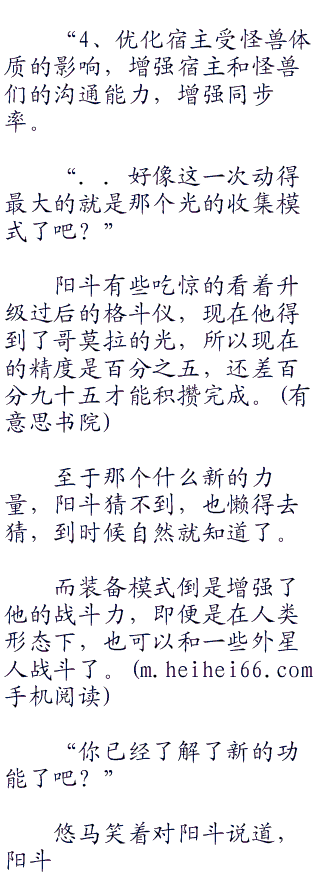 “4、优化宿主受怪兽体
质的影响，增强宿主和怪兽
们的沟通能力，增强同步
率。
“．．好像这一次动得
最大的就是那个光的收集模
式了吧？”
阳斗有些吃惊的看着升
级过后的格斗仪，现在他得
到了哥莫拉的光，所以现在
的精度是百分之五，还差百
分九十五才能积攒完成。(有
意思书院)
至于那个什么新的力
量，阳斗猜不到，也懒得去
猜，到时候自然就知道了。
而装备模式倒是增强了
他的战斗力，即便是在人类
形态下，也可以和一些外星
人战斗了。(m.heihei66.com
手机阅读)
“你已经了解了新的功
能了吧？”
悠马笑着对阳斗说道，
阳斗